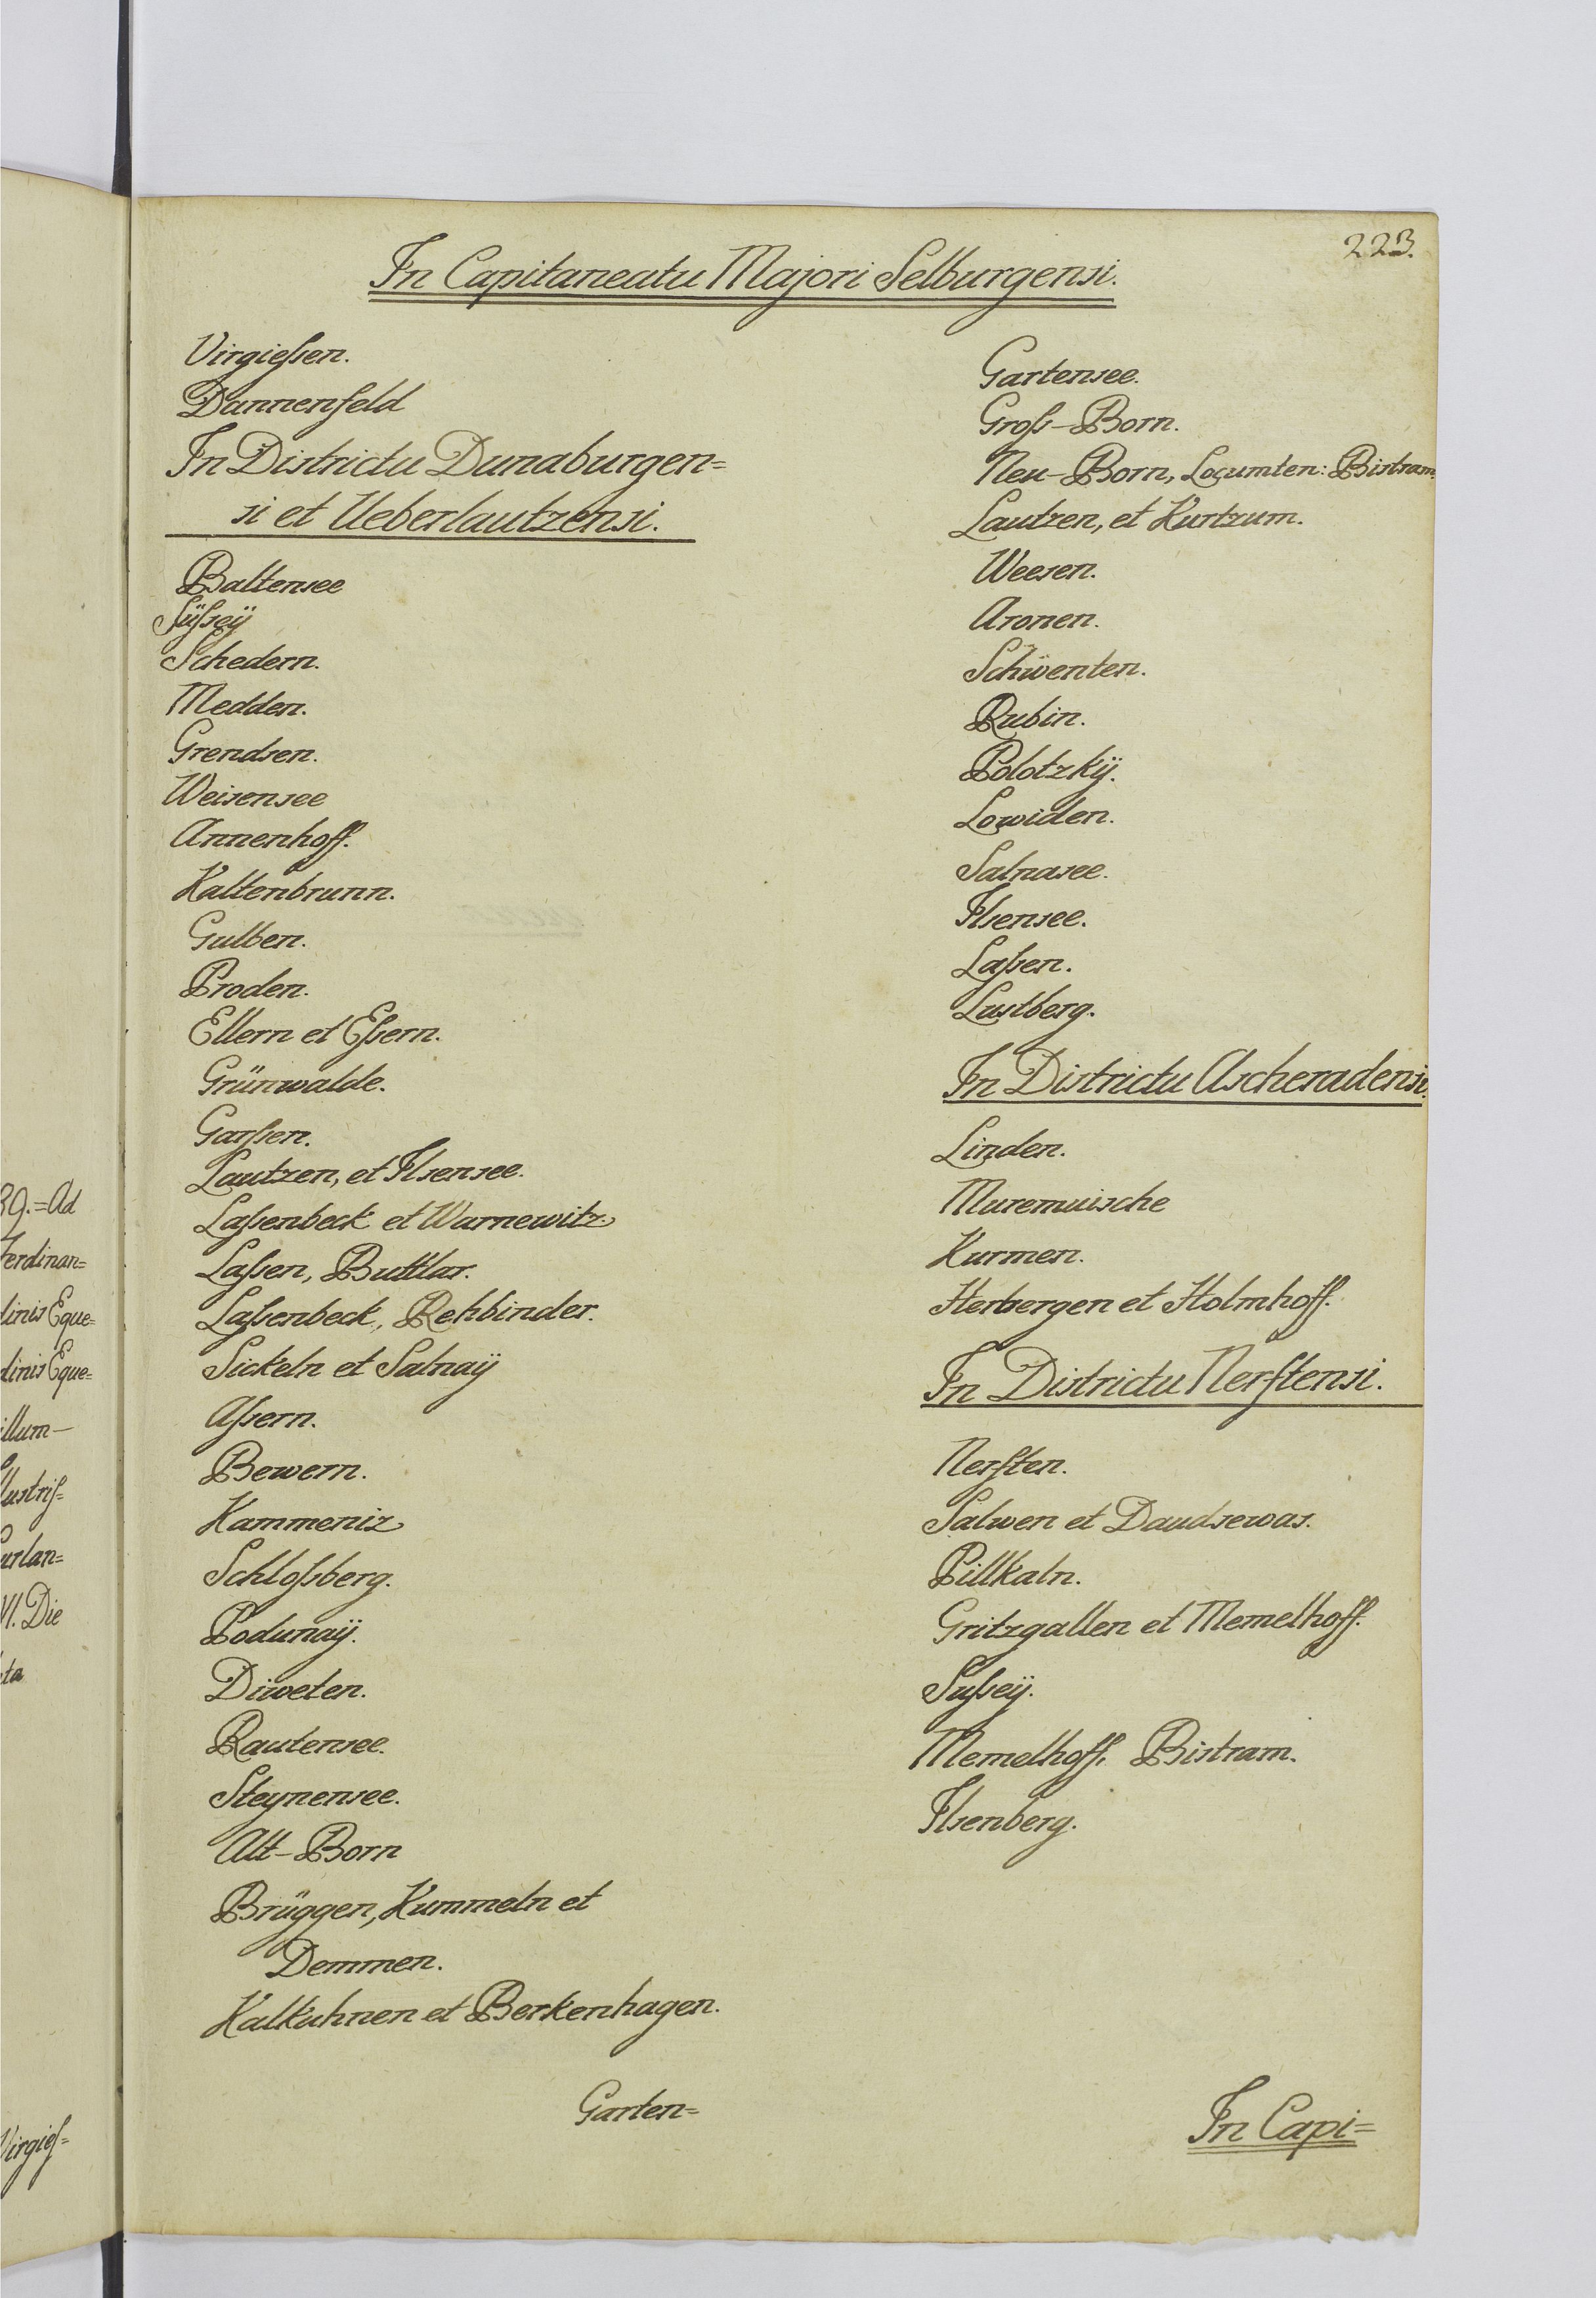 223.
In Capitaneatu Majori Selburgensi.
Virgieſsen.
Dannenfeld
In Districtu Dunaburgen=
si et Ueberlautzensi.
Baltensee
Süſseÿ
Schedern.
Medden.
Grendsen.
Weisensee
Annenhoff.
Kaltenbrunn.
Gulben.
Proden.
Ellern et Eſsern.
Grünwalde.
Garſsen.
Lautzen, et Ilsensee.
Laſsenbeck et Warnewitz.
Laſsen, Buttlar.
Laſsenbeck, Rehbinder.
Sickeln et Salnaÿ
Aſsern.
Bewern.
Kammeniz
Schloſsberg.
Podunaÿ.
Düweten.
Rautensee.
Steynensee.
Alt-Born
Brüggen, Kummeln et
Demmen.
Kalkuhnen et Berkenhagen.
Garten=
Gartensee.
Groſs-Born.
Neu-Born, Locumten: Bistram.
Lautzen, et Kurtzum.
Weesen.
Aronen.
Schwenten.
Rubin.
Polotzkÿ.
Lowiden.
Salnasee.
Ilsensee.
Laſsen.
Lustberg.
In Districtu Ascheradensi.
Linden.
Muremuische
Kurmen.
Herbergen et Holmhoff.
In Districtu Nerftensi.
Nerften.
Salwen et Daudsewas.
Pillkaln.
Gritzgallen et Memelhoff.
Suſseÿ.
Memelhoff, Bistram.
Ilsenberg.
In Capi=
39.=Ad
Ferdinan=
dinis Eque=
dinis Eque=
illum-
lustriſ=
Curlan=
VI. Die
ta
Virgieſ=